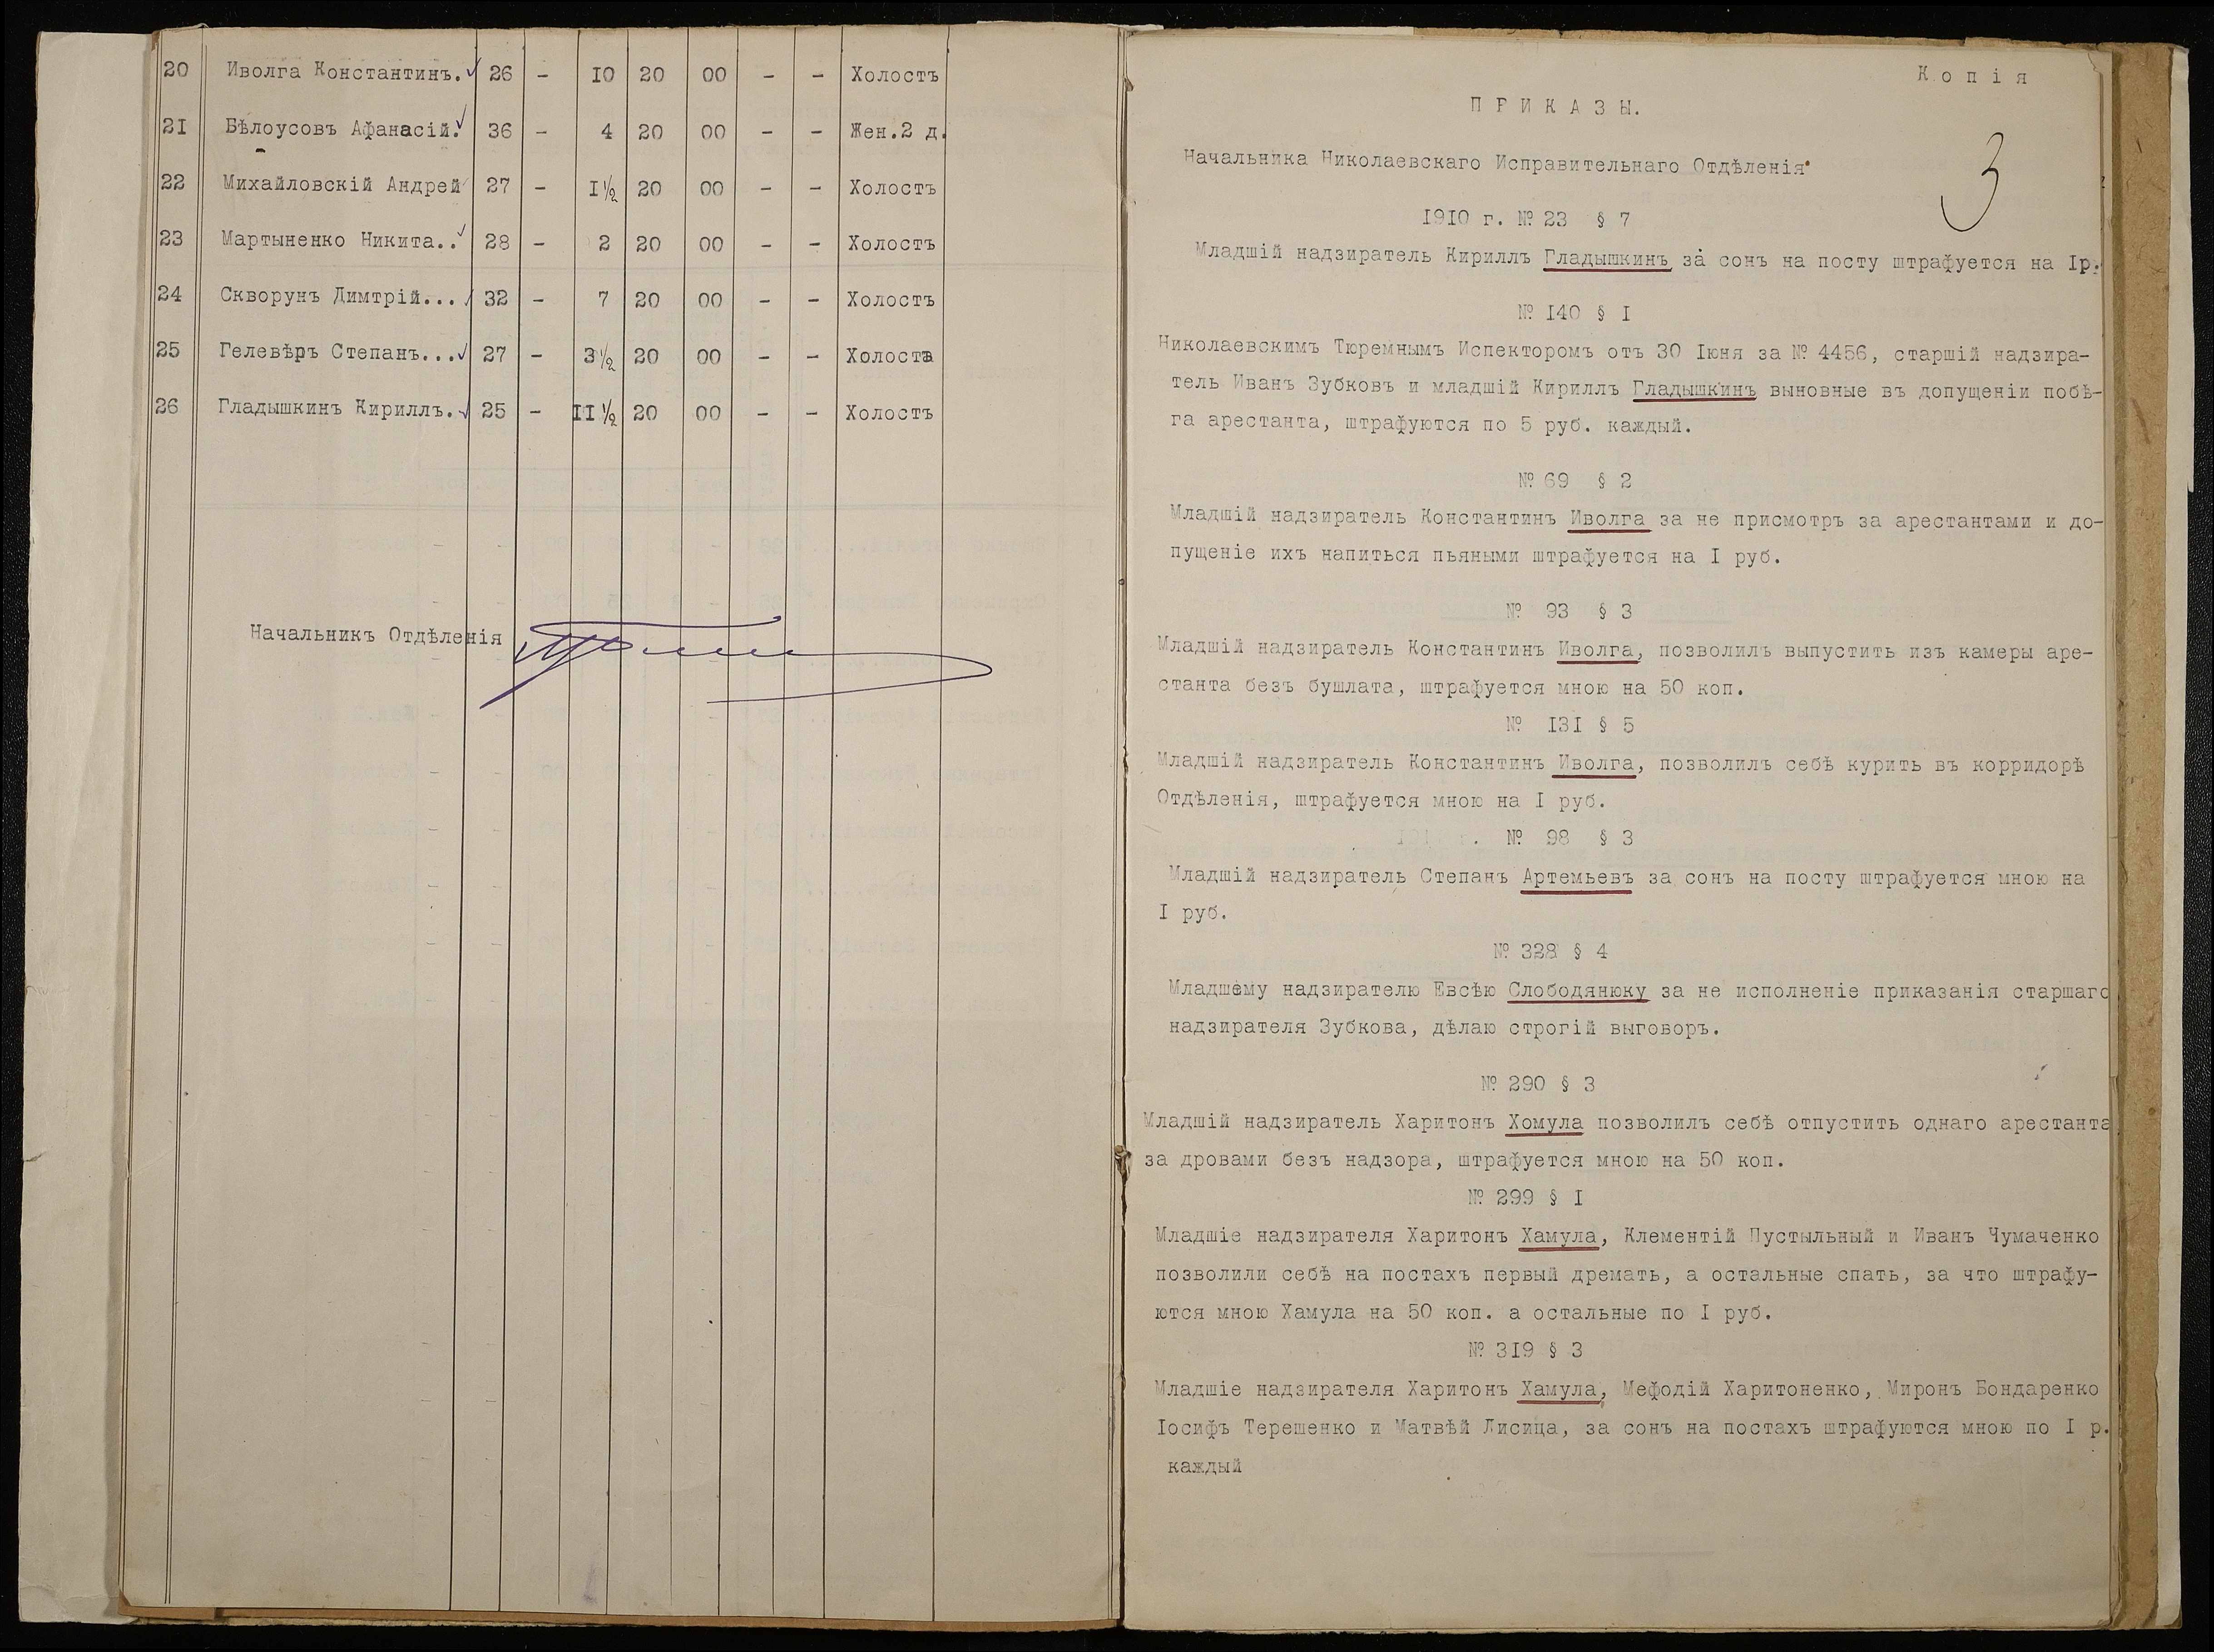 20 Иволга Константинъ. 26 - 10 20 00 - - Холостъ
21 Бѣлоусовъ Афанасій. 36 - 4 20 00 - - Жен.2 д.
22 Михайловскій Андрей 27 - I½ 20 00 - - Холостъ
23 Мартыненко Никита.. 28 - 2 20 00 - - Холостъ
24 Скворунъ Димтрій... 32 - 7 20 00 - - Холостъ
25 Гелевѣръ Степанъ... 27 - 3½ 20 00 - - Холостъ
26 Гладышкинъ Кириллъ. 25 - II½ 20 00 - - Холостъ
Начальникъ Отдѣленія
Копія
ПРИКАЗЫ.
3
Начальника Николаевскаго Исправительнаго Отдѣленія
1910 г. № 23 § 7
Младшій надзиратель Кириллъ Гладышкинъ за сонъ на посту штрафуется на Iр.
№ I40 § I
Николаевскимъ Тюремнымъ Испекторомъ отъ 30 Іюня за № 4456, старшій надзира-
тель Иванъ Зубковъ и младшій Кириллъ Гладышкинъ выновные въ допущеніи побѣ-
га арестанта, штрафуются по 5 руб. каждый.
№ 69 § 2
Младшій надзиратель Константинъ Иволга за не присмотръ за арестантами и до-
пущеніе ихъ напиться пьяными штрафуется на I руб.
№ 93 § 3
Младшій надзиратель Константинъ Иволга, позволилъ выпустить изъ камеры аре-
станта безъ бушлата, штрафуется мною на 50 коп.
№ I3I § 5
Младшій надзиратель Константинъ Иволга, позволилъ себѣ курить въ корридорѣ
Отдѣленія, штрафуется мною на I руб.
№ 98 § 3
Младшій надзиратель Степанъ Артемьевъ за сонъ на посту штрафуется мною на
I руб.
№ 328 § 4
Младшему надзирателю Евсѣю Слободянюку за не исполненіе приказанія старшаго
надзирателя Зубкова, дѣлаю строгій выговоръ.
№ 290 § 3
Младшій надзиратель Харитонъ Хомула позволилъ себѣ отпустить однаго арестанта
за дровами безъ надзора, штрафуется мною на 50 коп.
№ 299 § I
Младшіе надзирателя Харитонъ Хамула, Клементій Пустыльный и Иванъ Чумаченко
позволили себѣ на постахъ первый дремать, а остальные спать, за что штрафу-
ются мною Хамула на 50 коп. а остальные по I руб.
№ 3I9 § 3
Младшіе надзирателя Харитонъ Хамула, Мефодій Харитоненко, Миронъ Бондаренко
Іосифъ Терешенко и Матвѣй Лисица, за сонъ на постахъ штрафуются мною по I р.
каждый